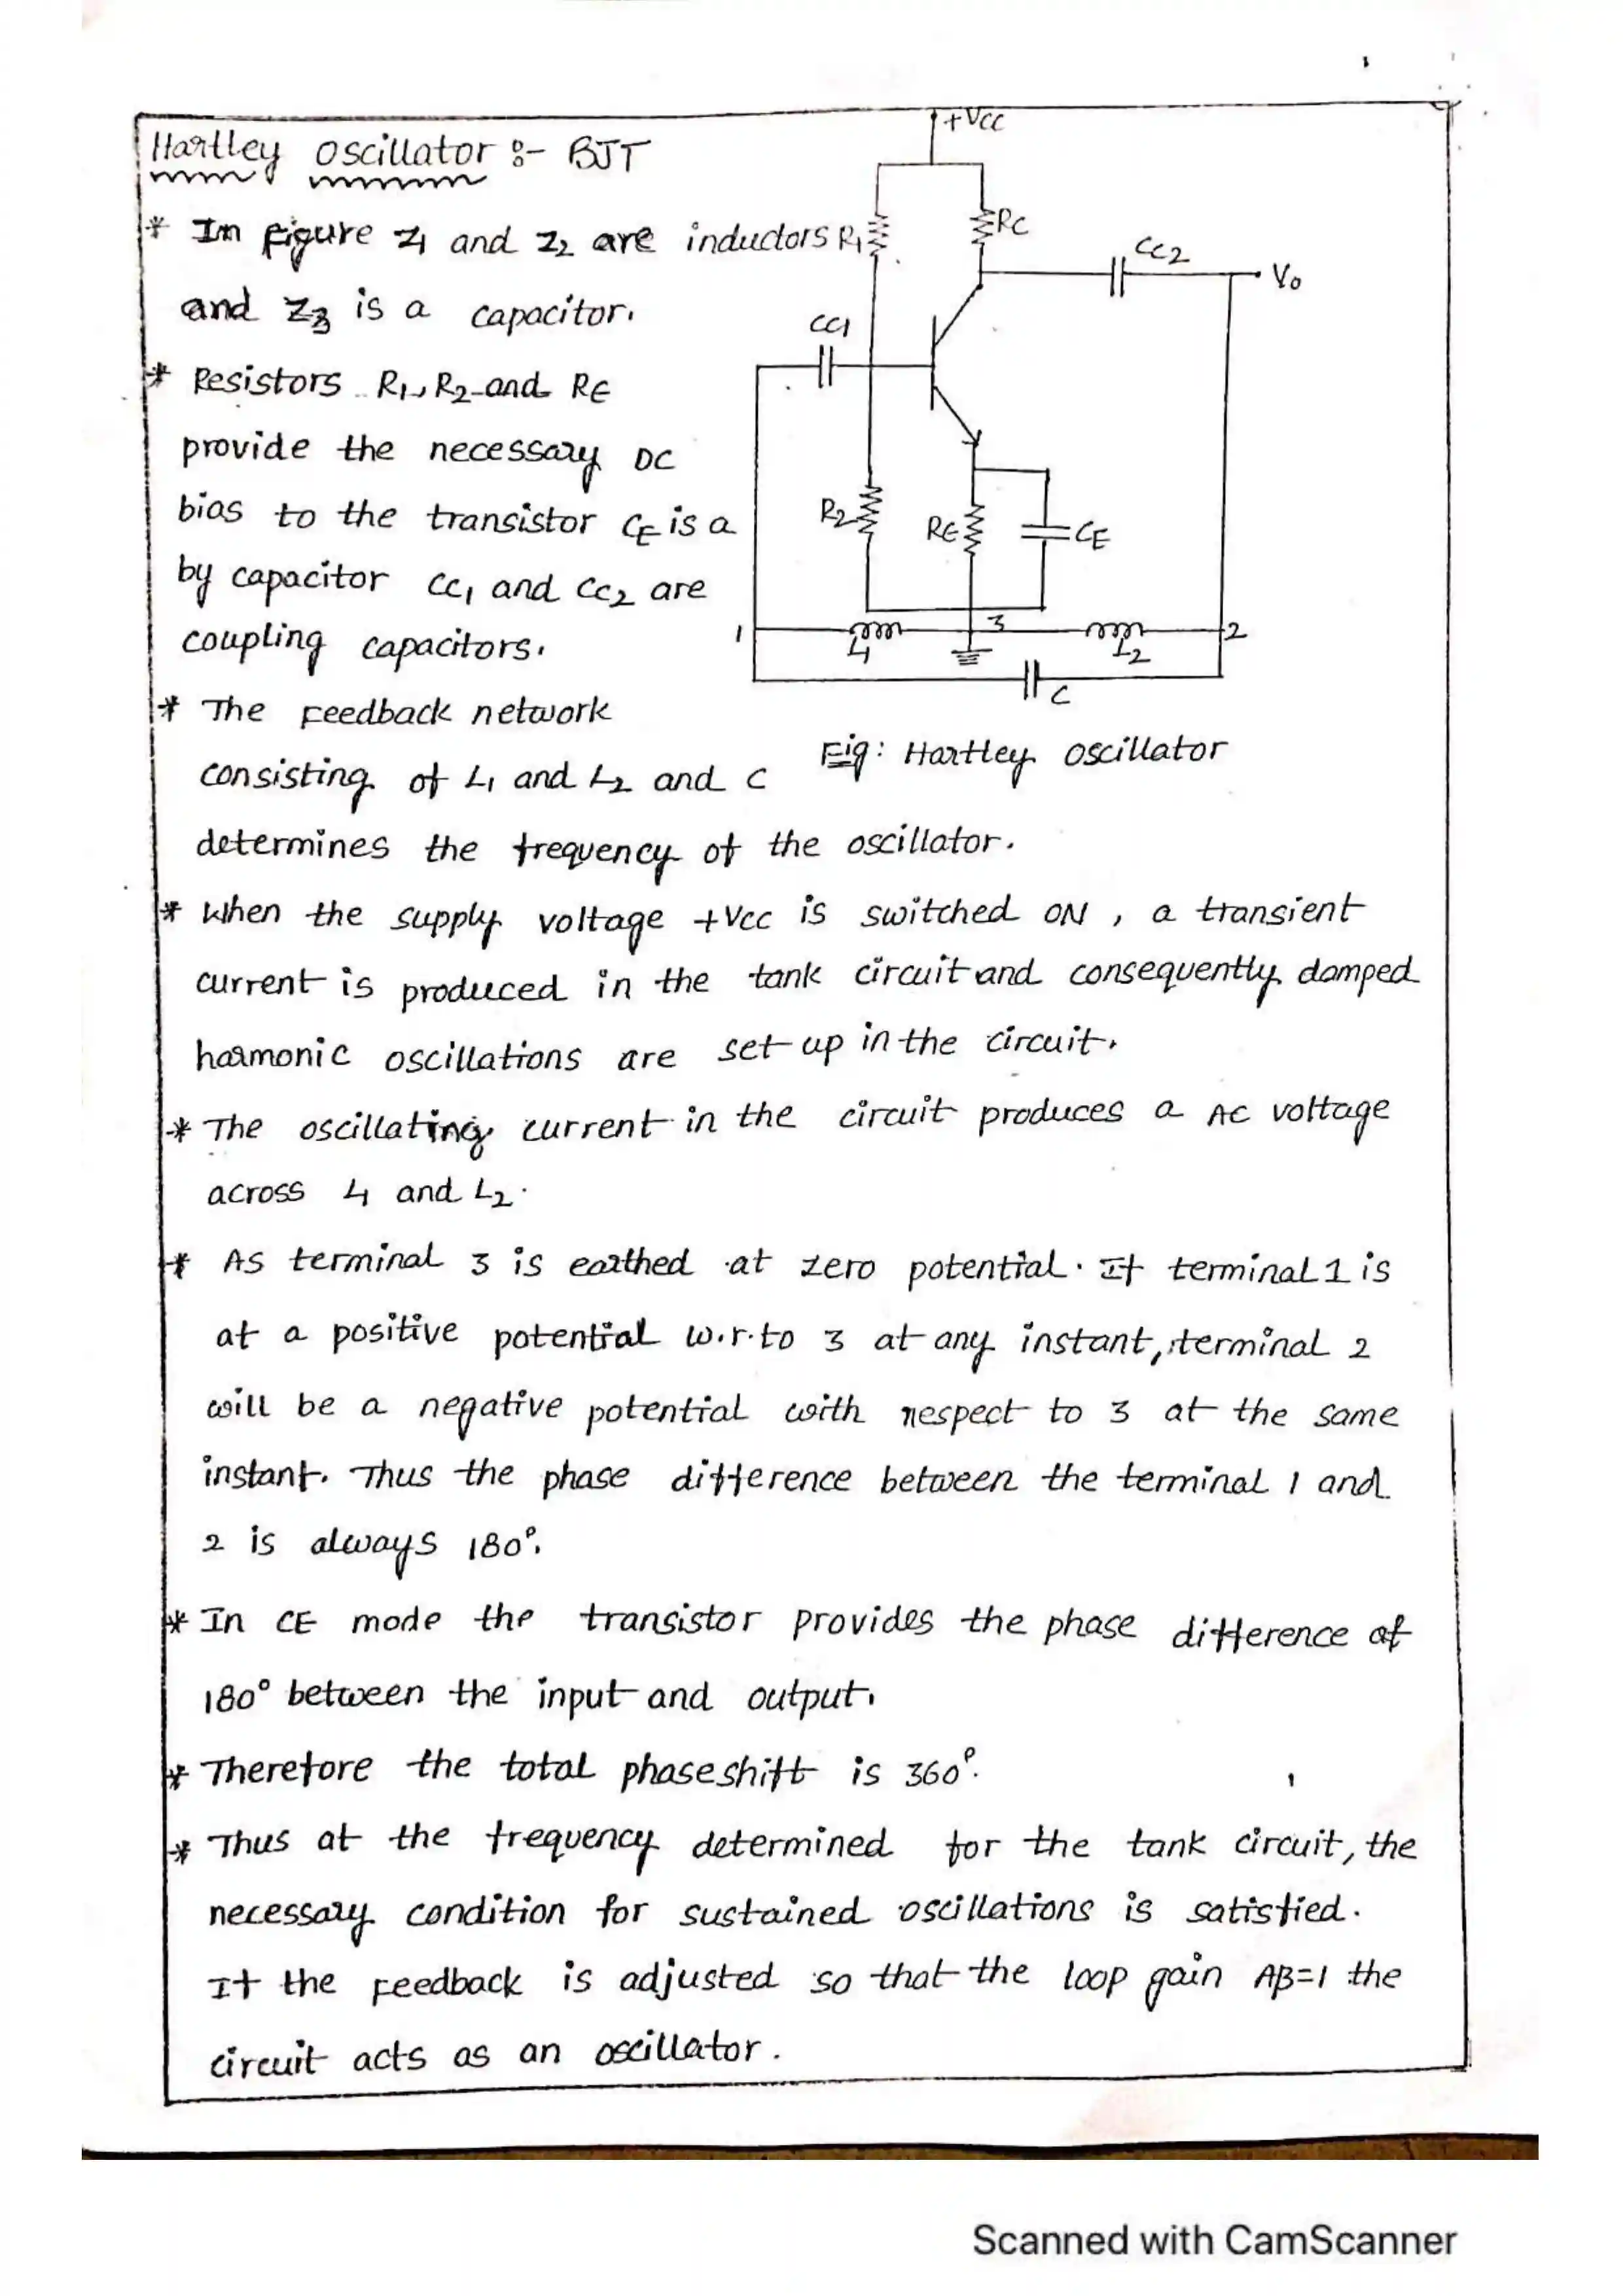 Hartley oscillator :- BJT
* In figure Z1 and Z2 are inductors
and Z3 is a capacitor.
* Resistors R1, R2 and RE
provide the necessary DC
bias to the transistor CE is a
by capacitor CC1 and CC2 are
coupling capacitors.
* The Feedback network
consisting of L1 and L2 and C
determines the frequency of the oscillator.
+VCC
R1
RC
CC2
Vo
CC1
R2
RE
CE
1
3
2
L1
L2
C
Fig: Hartley oscillator
* When the supply voltage +Vcc is switched ON, a transient
current is produced in the tank circuit and consequently damped
harmonic oscillations are set up in the circuit.
* The oscillating current in the circuit produces a AC voltage
across L1 and L2.
* As terminal 3 is earthed at zero potential. If terminal 1 is
at a positive potential w.r.to 3 at any instant, terminal 2
will be a negative potential with respect to 3 at the same
instant. Thus the phase difference between the terminal 1 and
2 is always 180°.
* In CE mode the transistor provides the phase difference of
180° between the input and output.
* Therefore the total phaseshift is 360°.
* Thus at the frequency determined for the tank circuit, the
necessary condition for sustained oscillations is satisfied.
If the Feedback is adjusted so that the loop gain Aβ=1 the
circuit acts as an oscillator.
Scanned with CamScanner